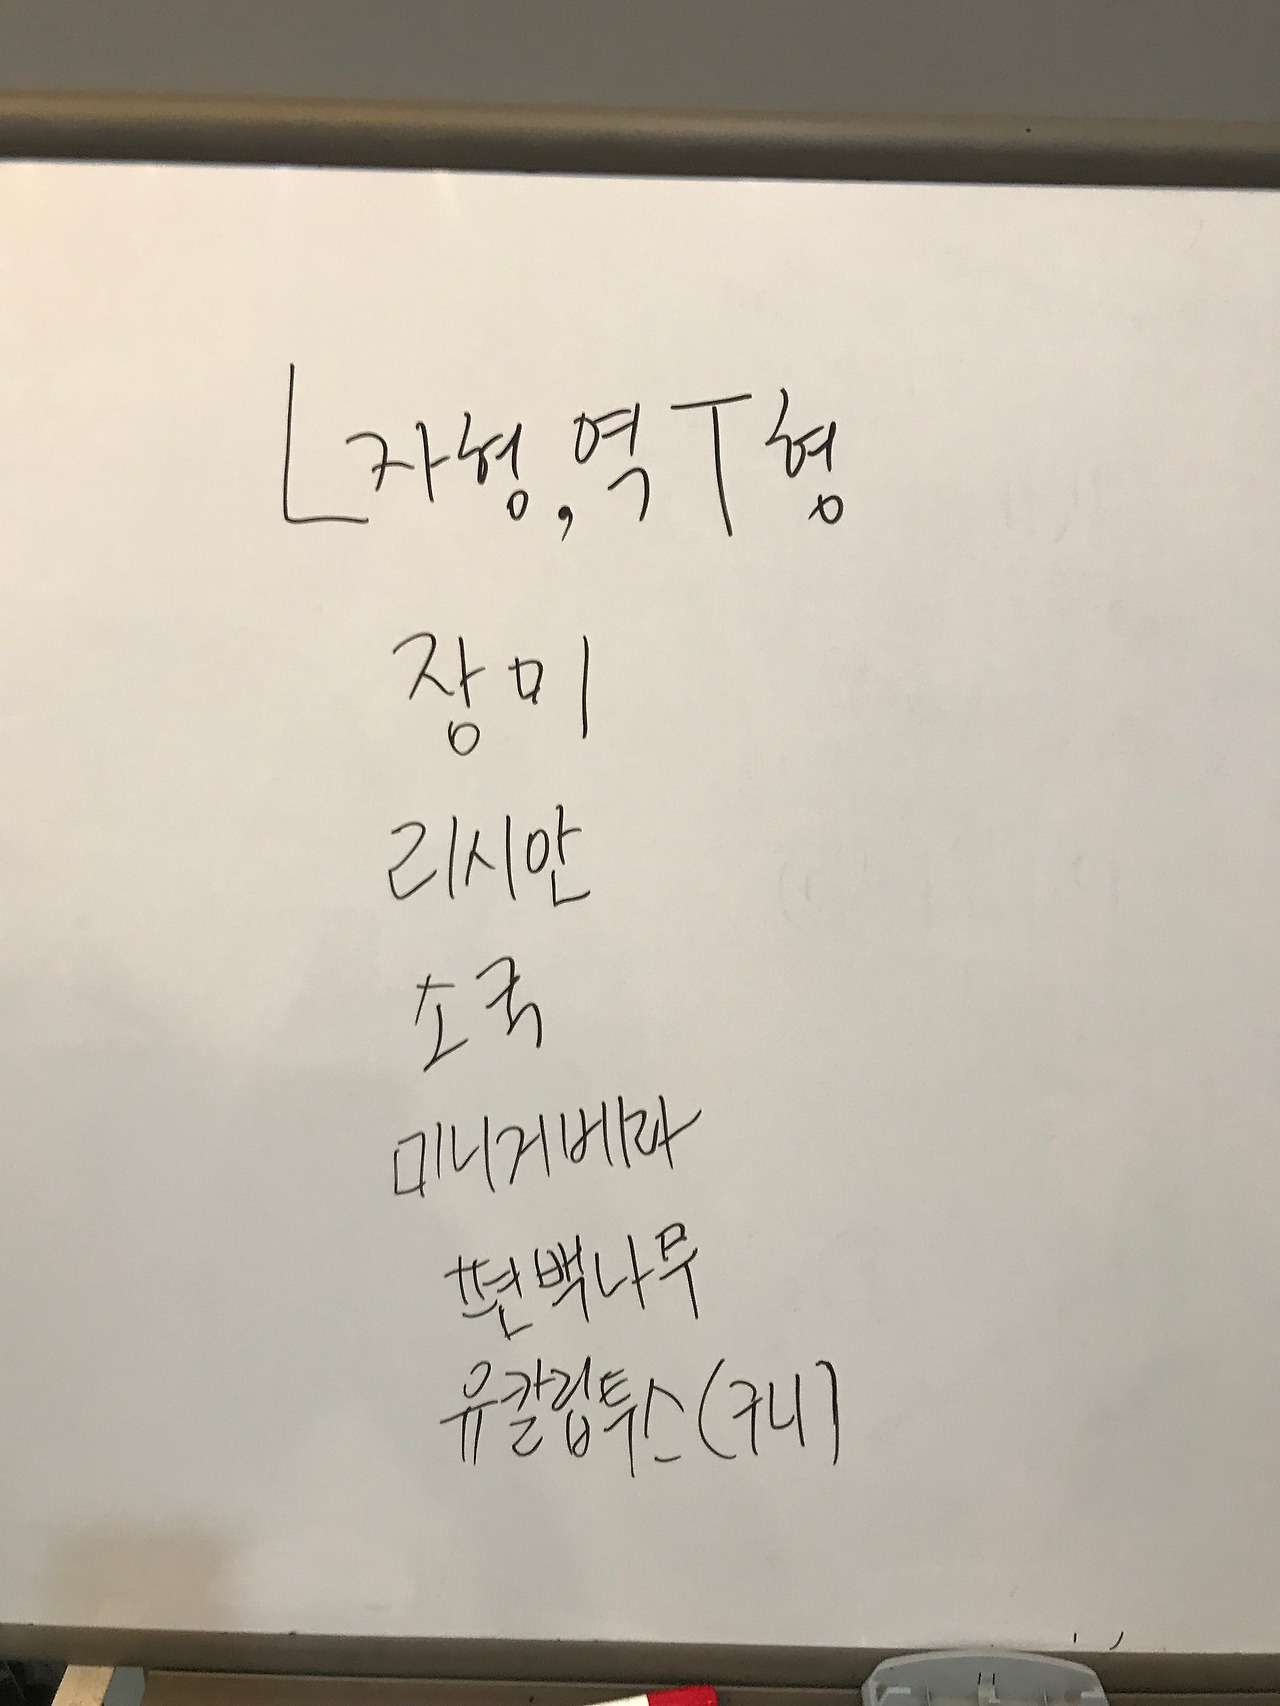 L자형, 역T형
장미
리시안
소국
미니거베라
편백나무
유칼립투스(구니)